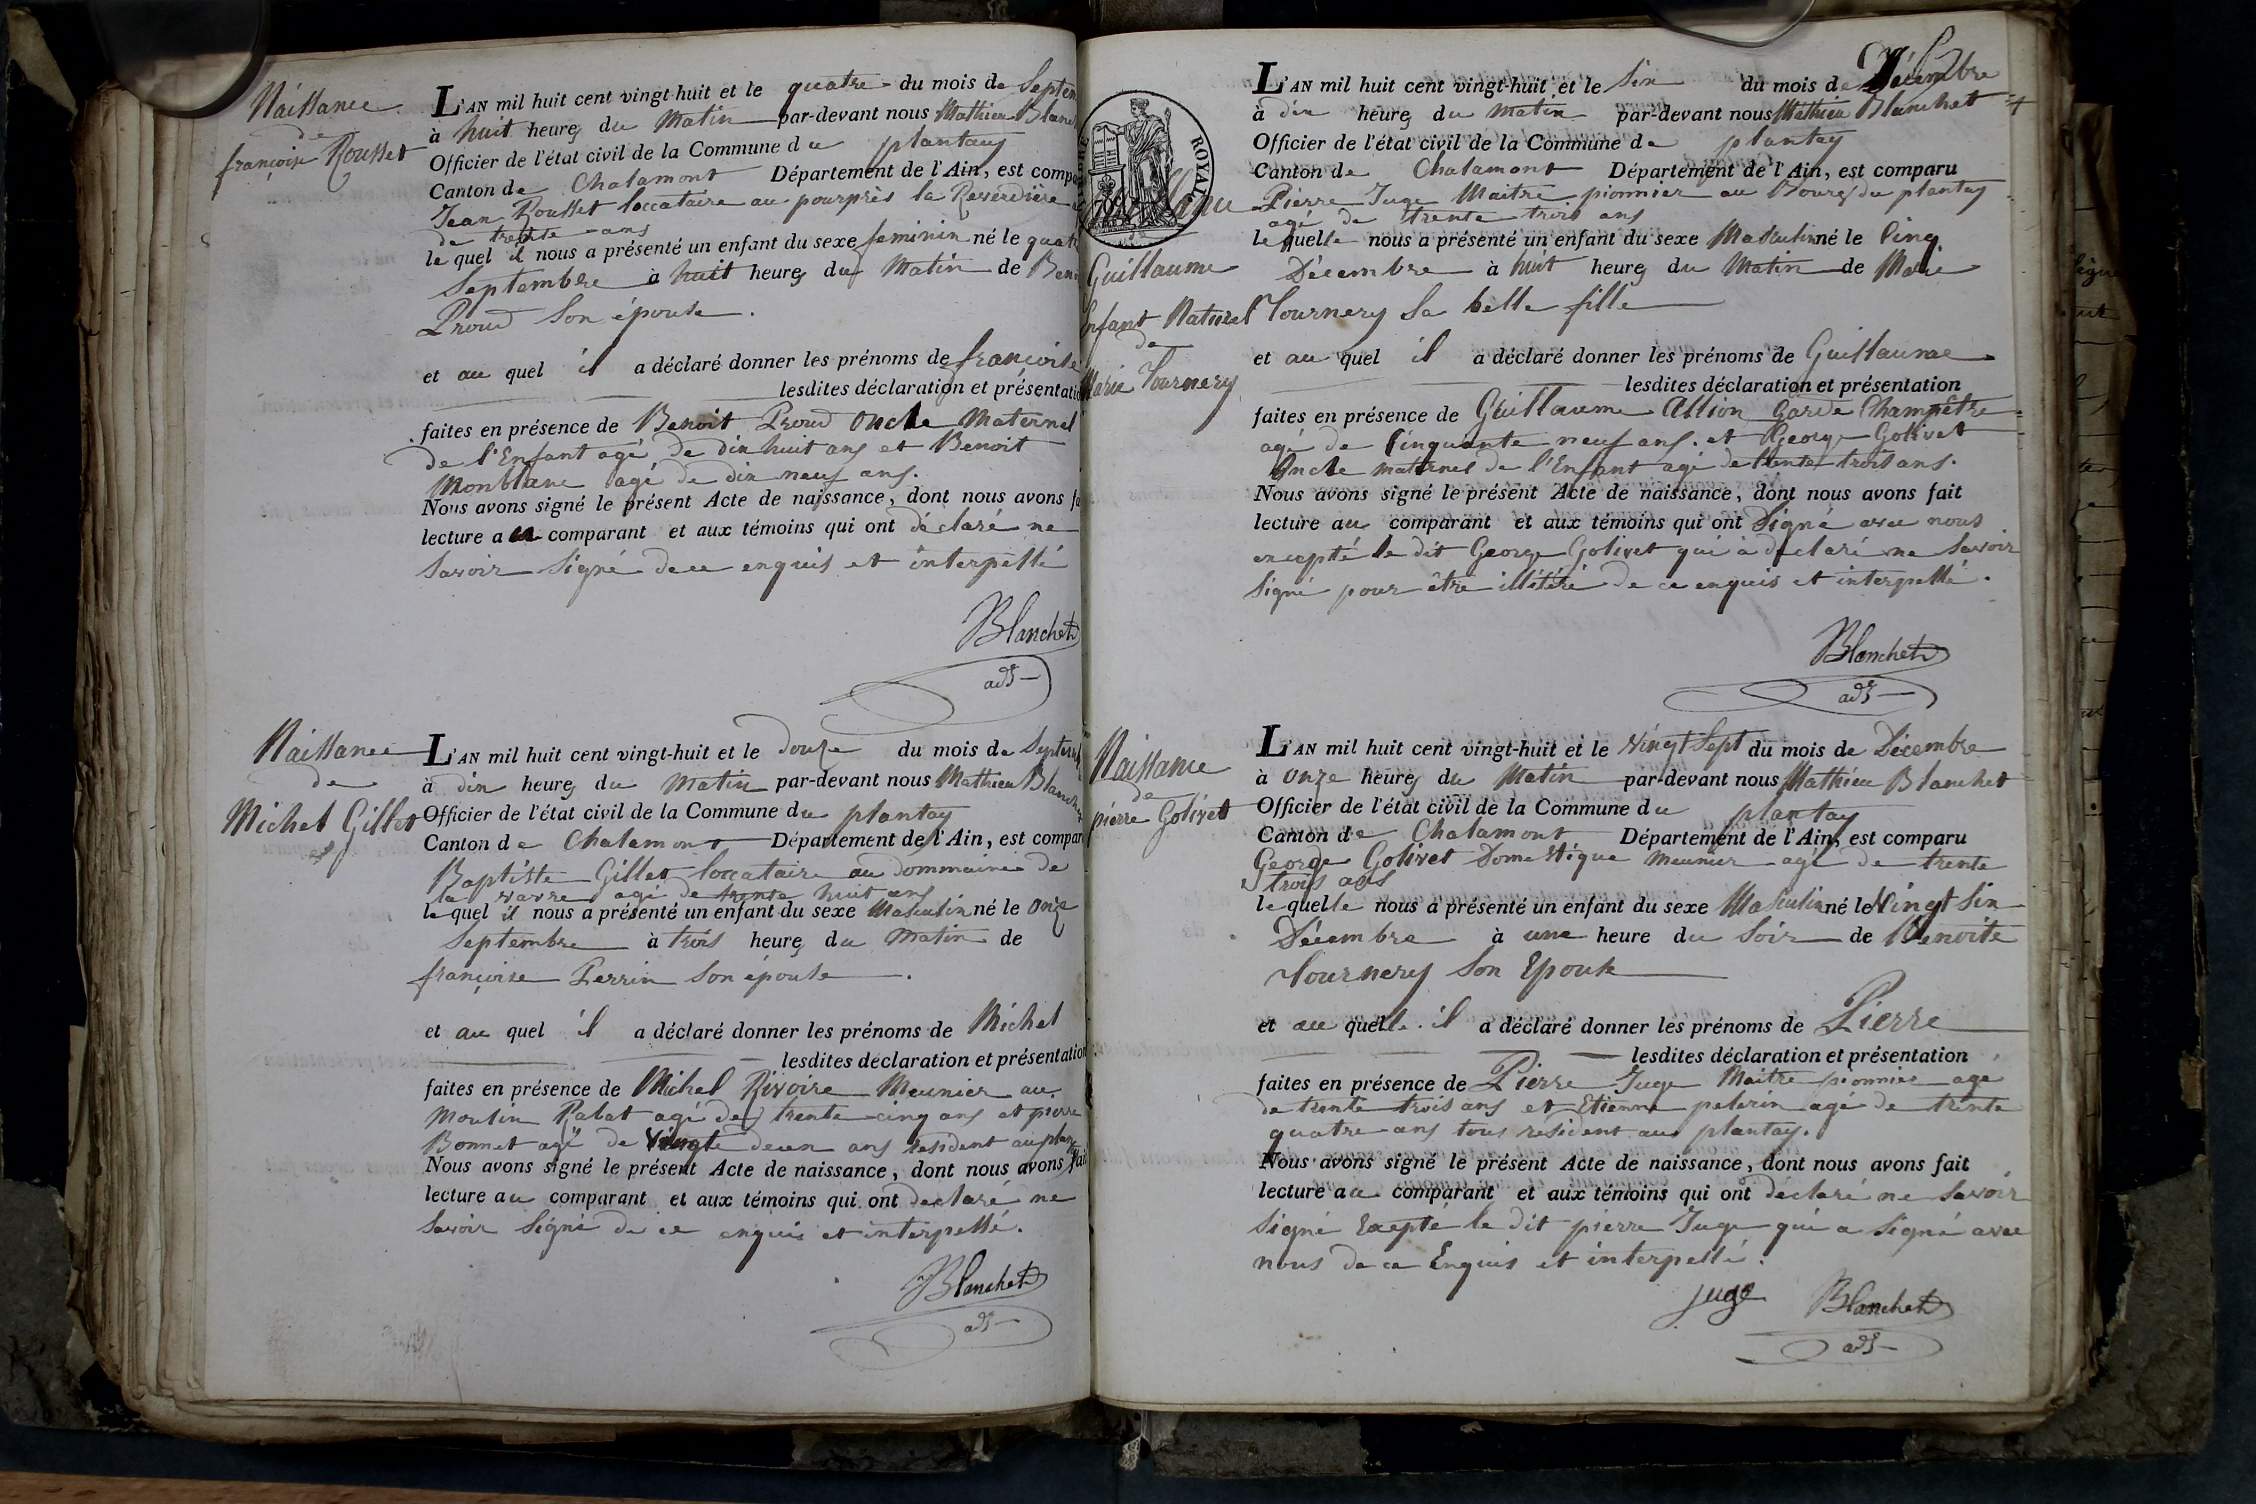 Naissance
de
françoise Rousset
L'AN mil huit cent vingt-huit et le quatre du mois de Septem
à huit heures du Matin par-devant nous Mathieu Blanch
Officier de l'état civil de la Commune du plantay
Canton de Chalamont Département de l'Ain, est compa
Jean Rousset loccataire au pourprès la Reverdière
de trente ans
le quel il nous a présenté un enfant du sexe feminin né le quat
Septembre à huit heures du Matin de Ben
Proud Son épouse.
et au quel il a déclaré donner les prénoms de françoise
lesdites déclaration et présentatio
faites en présence de Benoit Proud Oncle Maternel
de l'Enfant agé de dix huit ans et Benoit
Monblanc agé de dix neuf ans.
Nous avons signé le présent Acte de naissance, dont nous avons fa
lecture au comparant et aux témoins qui ont déclaré ne
Savoir Signé de ce enquis et interpellé
Blanchet
adt
Naissance
de
Michel Gillet
L'AN mil huit cent vingt-huit et le douze du mois de Septemb
à dix heures du Matin par-devant nous Mathieu Blanchet
Officier de l'état civil de la Commune du plantay
Canton de Chalamont Département de l'Ain, est compar
Baptiste Gillet loccataire au dommaine de
la varre agé de trente huit ans
le quel il nous a présenté un enfant du sexe Masculin né le Onze
Septembre à trois heures du Matin de
françoise Perrin Son épouse.
et au quel il a déclaré donner les prénoms de Michel
lesdites déclaration et présentation
faites en présence de Michel Rivoire Meunier au
Moulin Rabat agé de trente cinq ans et pierre
Bonnet agé de Vingt deux ans resident au plan
Nous avons signé le présent Acte de naissance, dont nous avons fait
lecture au comparant et aux témoins qui ont declaré ne
Savoir Signé de ce enquis et interpellé.
Blanchet
adt
TIMBRE ROYAL
Guillaume
Enfant Naturel
de
Marie Tournery
L'AN mil huit cent vingt-huit et le Six du mois de Décembre
à dix heures du Matin par-devant nous Mathieu Blanchet
Officier de l'état civil de la Commune de plantay
Canton de Chalamont Département de l'Ain, est comparu
Pierre Juge Maitre pionnier au Bourg du plantay
agé de trente trois ans
le quelle nous a présenté un enfant du sexe Masculin né le Cinq
Décembre à huit heures du Matin de Marie
Tournery Sa belle fille
et au quel il a déclaré donner les prénoms de Guillaume
lesdites déclaration et présentation
faites en présence de Guillaume Allion Garde Champêtre
agé de Cinquante neuf ans. et George Golivet
Oncle maternel de l'Enfant agé de trente trois ans.
Nous avons signé le présent Acte de naissance, dont nous avons fait
lecture au comparant et aux témoins qui ont Signé avec nous
excepté le dit George Golivet qui à déclaré ne Savoir
Signé pour être illitéré de ce enquis et interpellé.
Blanchet
adt
Naissance
de
pierre Golivet
L'AN mil huit cent vingt-huit et le Vingt Sept du mois de Décembre
à Onze heures du Matin par-devant nous Mathieu Blanchet
Officier de l'état civil de la Commune du plantay
Canton de Chalamont Département de l'Ain, est comparu
George Golivet Domestique meunier agé de trente
trois ans
le quelle nous a présenté un enfant du sexe Masculin né le Vingt Six
Décembre à une heure du Soir de Benoite
Tournery Son Epouse
et au quelle il a déclaré donner les prénoms de Pierre
lesdites déclaration et présentation
faites en présence de Pierre Juge Maitre pionnier agé
de trente trois ans et Etienne pelerin agé de trente
quatre ans tous résident au plantay.
Nous avons signé le présent Acte de naissance, dont nous avons fait
lecture au comparant et aux témoins qui ont déclaré ne Savoir
Signé Excepté le dit pierre Juge qui a Signé avec
nous de ce Enquis et interpellé.
juge Blanchet
adt